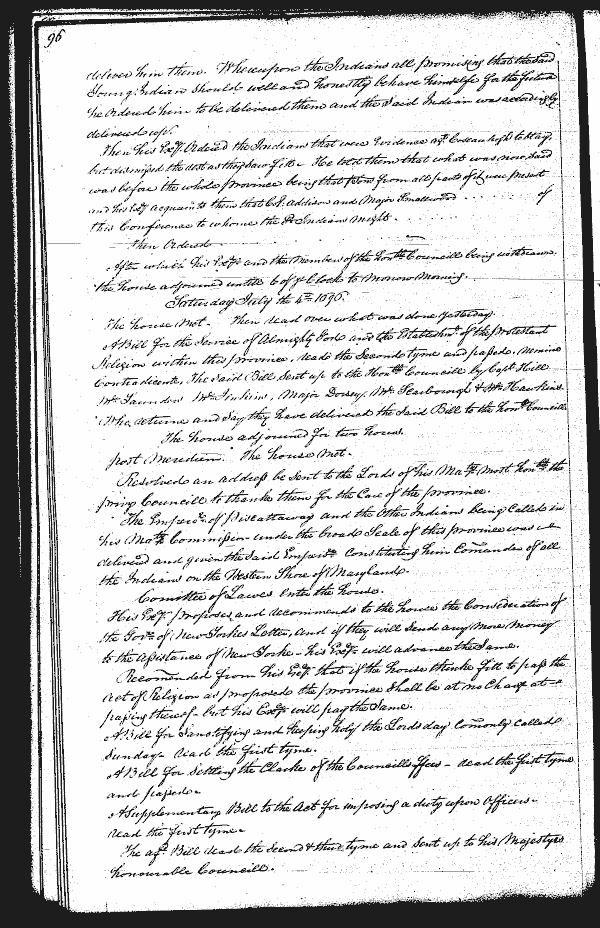 96
deliver him them. Whereupon the Indians all promising that the said
Young Indian should well and honestly behave himselfe for the future
he Ordered him to be delivered them and the said Indian was accordingly
delivered up.
Then his Exy. Ordered the Indians that were Evidence agt. to stay
but dismissed the rest as they saw fitt. He told them that what was now said
was before the whole province being that from all parts of it were present
and his Exy. acquaints them that Col. Addison and Major Smallwood . . . . . of
this Conference to whome the Indians might .
Then Ordered
After which his Exy. and the Members of the Honble. Councill being withdrawn
the house adjourned untill 6 of ye Clock to Morrow Morning.
Saturday July the 4th. 1696.
The house Met. Then read over what was done yesterday.
A Bill for the Service of Almighty God and the Establishmt. of the Protestant
Religion within this province, read the Second tyme and passed. Nemine
Contradicente, The said Bill Sent up to the Honble. Councill by Capt. Hill
Mr. Saunders Mr. Jenkins, Major Dorsey Mr. Scarborough & Mr. Hawkins.
Who returne and Say they have delivered the said Bill to the honble. Councill
The house adjourned for two houres.
post Meridiem. The house Met.
Resolved an address be sent to the Lords of his Matys. Most Honble. the
privy Councill to thanke them for the Care of the province.
The Emperor. of Piscattaway and the other Indians being Called in
his Matys. Commission under the broad Seale of this Province was
delivered and given the said Emperor. Constituting him Comander of all
the Indians on the Western Shore of Maryland.
Comittee of Lawes enter the house.
His Exy. proposes and recommends to the house the Consideration of
the Govr. of New Yorkes Letter, and if they will send any more Money
to the assistance of New Yorke - his Exy. will advance the Same.
Recomended from his Exy. that if the house thinke fitt to pass the
Act of Religion as proposed the province Shall be at no Charge at
passing thereof - but his Exy. will pay the Same.
A Bill for Sanctifying and keeping holy the Lords day Comonly called
Sunday - read the first tyme.
A Bill for Settling the Clarke of the Councills ffees - read the first tyme
and passed -
A Supplementary Bill to the Act for imposing a duty upon Officers -
read the first tyme -
The afd. Bill read the Second & third tyme and Sent up to his Majestyes
honourable Councill.